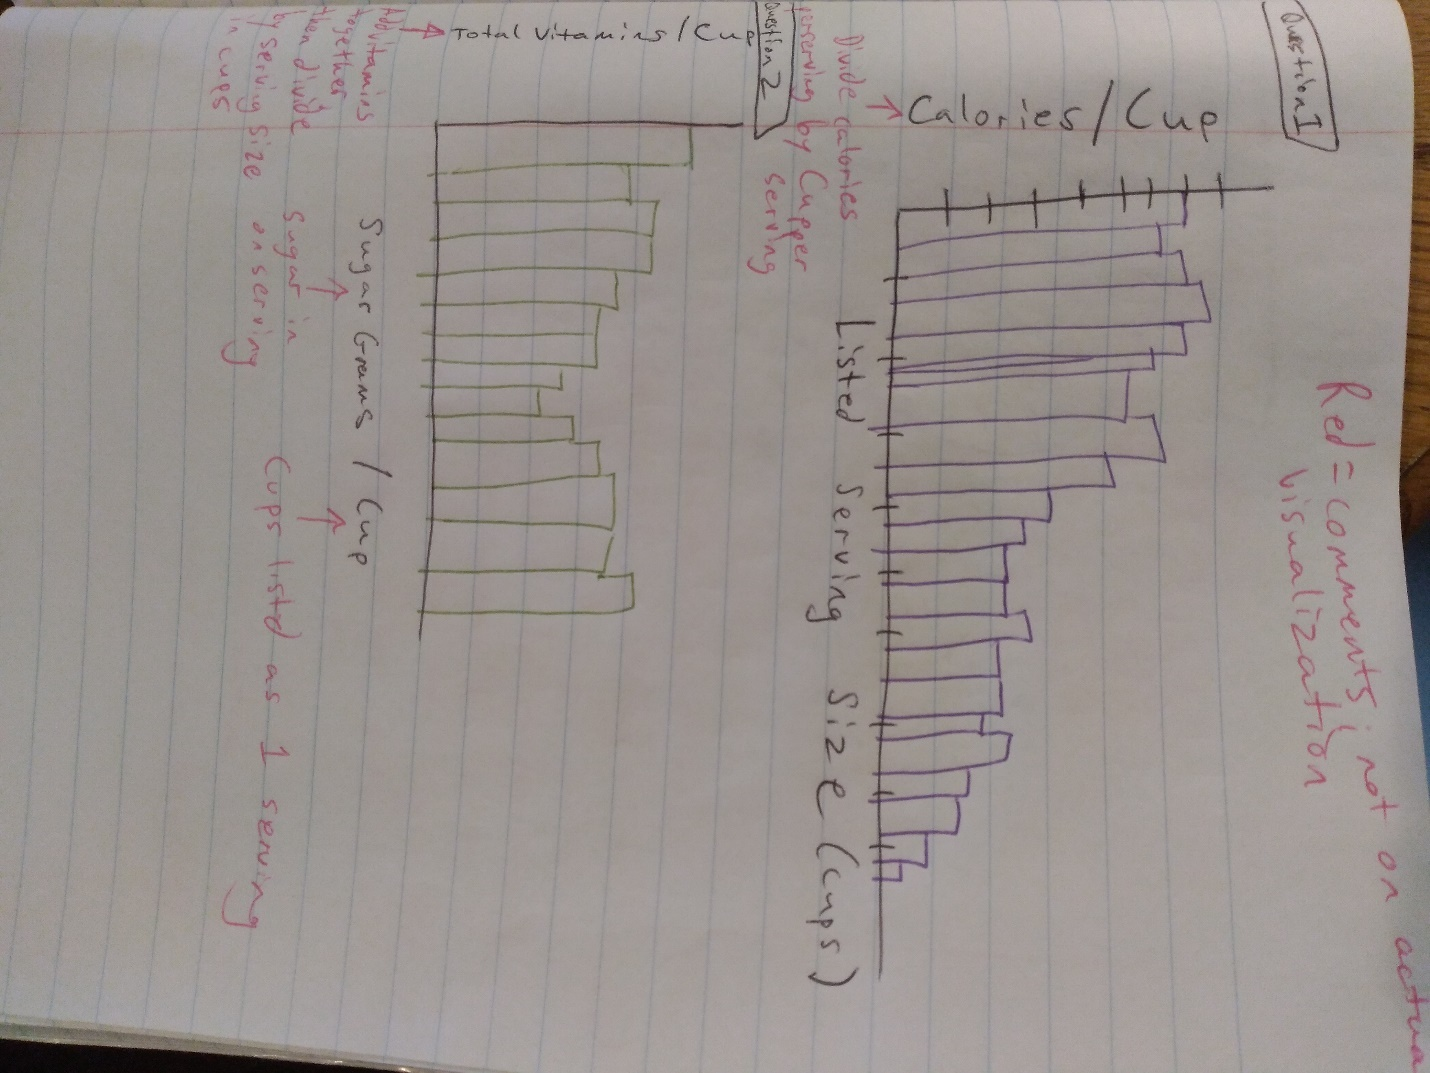 Question 1
Red = comments, not on actua
visualization
Calories / Cup
Divide calories
perserving by Cup per
serving
Listed Serving Size (Cups)
Question 2
Total Vitamins / Cup
Add vitamins
together
then divide
by serving size
in cups
Sugar Grams / Cup
Sugar in
on serving
Cups listed as 1 serving